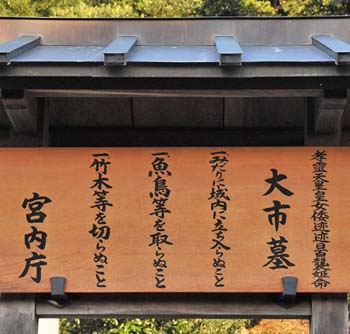 孝霊天皇皇女倭迹迹日百襲姫命
大市墓
一みだりに域内に立入らぬこと
一魚鳥等を取らぬこと
一竹木等を切らぬこと
宮内庁